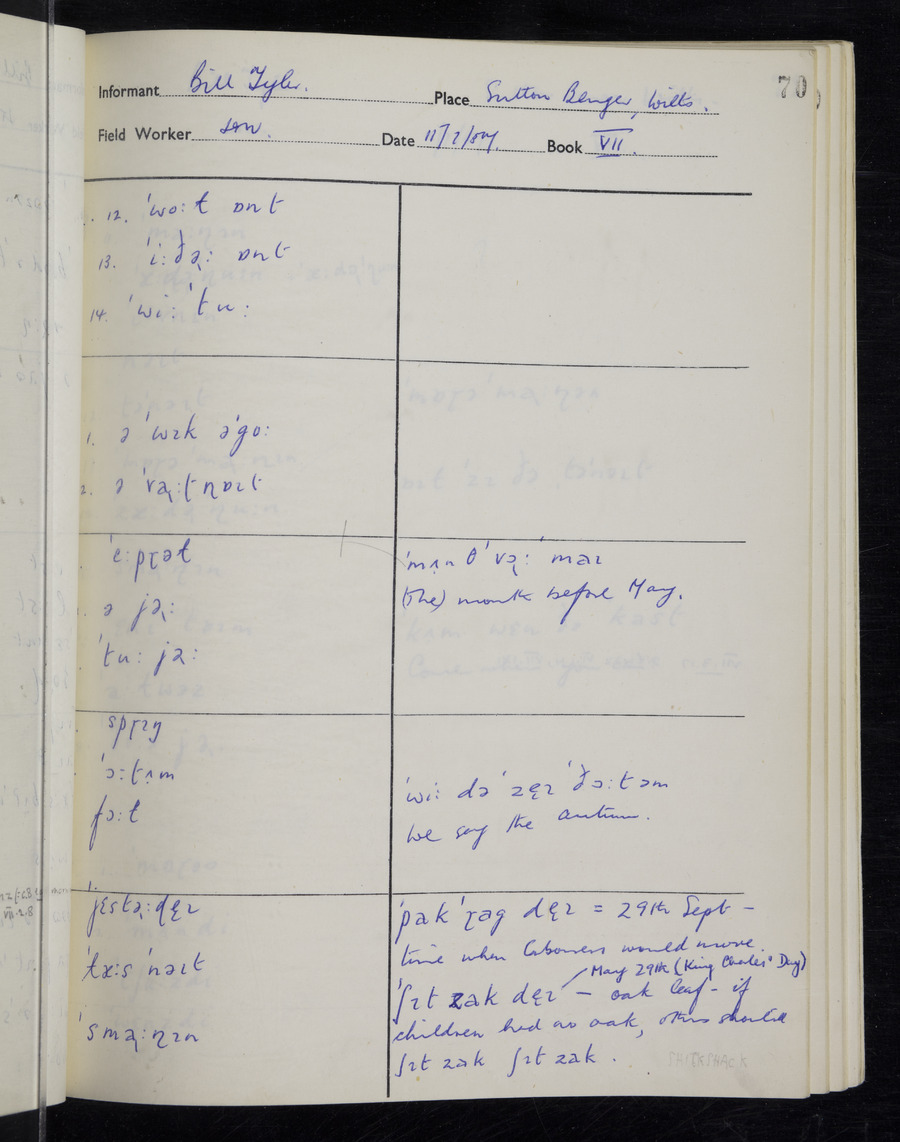 70
Informant Bill Tyler. Place Sutton Benger, Wilts.
Field Worker Date Book VII.
12. ˈwɒːt ɒnt
13. ˈiːðəɻː ɒnt
14. ˈwiː ˈtuː
1. ə ˈwɪk əˈgoː
2. ə ˈvəɻːtnəɪt
ˈeːpɽət
ə jəɻː
ˈtuː jəː
ˈmʌnθ ˈvəɻː maɪ
(The) month before May.
ˈspɽɪŋ
ˈɔːtʌm
fɔːt
ˈwiː də ˈzeɪ ˈðɔːtəm
We say the autumn.
ˈjɛstəɻːdeɪ
ˈtəːs ˈnəɪt
ˈsməɻːnɪn
ˈpak ˈɽag deɪ = 29th Sept –
time when labourers would move.
May 29th (King Charles' Day)
ˈʃɪt zak deɪ – oak leaf – if
children had no oak, others should
ʃɪt zak ʃɪt zak.
SHICKSHACK